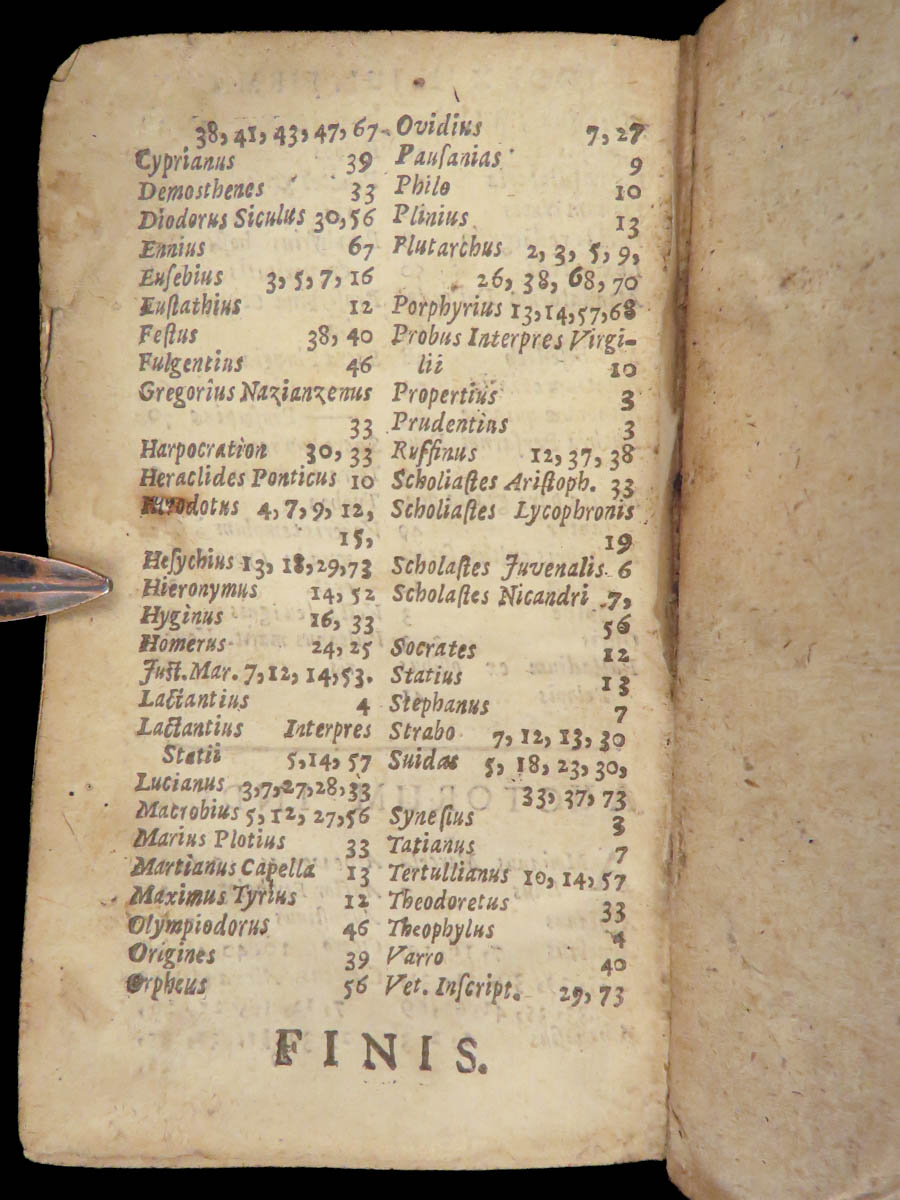 38, 41, 43, 47, 67
Cyprianus 39
Demosthenes 33
Diodorus Siculus 30, 56
Ennius 67
Euſebius 3, 5, 7, 16
Euſtathius 12
Feſtus 38, 40
Fulgentius 46
Gregorius Nazianzenus
33
Harpocration 30, 33
Heraclides Ponticus 10
Herodotus 4, 7, 9, 12,
15,
Heſychius 13, 18, 29, 73
Hieronymus 14, 52
Hyginus 16, 33
Homerus 24, 25
Juſt. Mar. 7, 12, 14, 53.
Lactantius 4
Lactantius Interpres
Statii 5, 14, 57
Lucianus 3, 7, 27, 28, 33
Macrobius 5, 12, 27, 56
Marius Plotius 33
Martianus Capella 13
Maximus Tyrius 12
Olympiodorus 46
Origines 39
Orpheus 56
Ovidius 7, 27
Pauſanias 9
Philo 10
Plinius 13
Plutarchus 2, 3, 5, 9,
26, 38, 68, 70
Porphyrius 13, 14, 57, 68
Probus Interpres Virgi-
lii 10
Propertius 3
Prudentius 3
Ruffinus 12, 37, 38
Scholiaſtes Ariſtoph. 33
Scholiaſtes Lycophronis
19
Scholaſtes Juvenalis 6
Scholaſtes Nicandri 7,
56
Socrates 12
Statius 13
Stephanus 7
Strabo 7, 12, 13, 30
Suidas 5, 18, 23, 30,
33, 37, 73
Syneſius 3
Tatianus 7
Tertullianus 10, 14, 57
Theodoretus 33
Theophylus 4
Varro 40
Vet. Inſcript. 29, 73
FINIS.